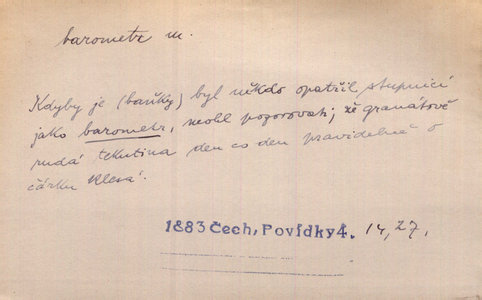 barometr m.
Kdyby je (baňky) byl někdo opatřil stupnicí
jako barometr, mohl pozorovati, že granátově
rudá tekutina den co den pravidelně o
čárku klesá.
1883 Čech, Povídky 4. 14, 27.